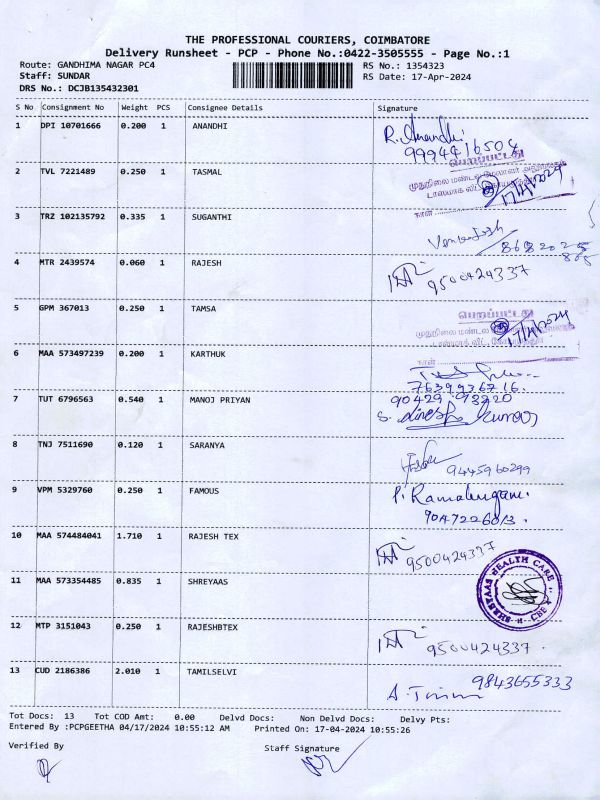 THE PROFESSIONAL COURIERS, COIMBATORE
Delivery Runsheet - PCP - Phone No.:0422-3505555 - Page No.:1
Route: GANDHIMA NAGAR PC4
RS No.: 1354323
Staff: SUNDAR
RS Date: 17-Apr-2024
DRS No.: DCJB135432301
S No Consignment No Weight PCS Consignee Details Signature
1 DPI 10701666 0.200 1 ANANDHI R. Anandhi
9994416504
பெறப்பட்டது
2 TVL 7221489 0.250 1 TASMAL
நாள்
3 TRZ 102135792 0.335 1 SUGANTHI
4 MTR 2439574 0.060 1 RAJESH 9500424337
5 GPM 367013 0.250 1 TAMSA
பெறப்பட்டது
நாள்
6 MAA 573497239 0.200 1 KARTHUK
7639936716.
7 TUT 6796563 0.540 1 MANOJ PRIYAN
S. dinesh kumar
8 TNJ 7511690 0.120 1 SARANYA 9445960299
9 VPM 5329760 0.250 1 FAMOUS P. Ramalingam.
9047226013.
10 MAA 574484041 1.710 1 RAJESH TEX 9500424337
11 MAA 573354485 0.835 1 SHREYAAS SHREYAAS HEALTH CARE CBE
12 MTP 3151043 0.250 1 RAJESHBTEX 9500424337.
13 CUD 2186386 2.010 1 TAMILSELVI 9843655333
Tot Docs: 13 Tot COD Amt: 0.00 Delvd Docs: Non Delvd Docs: Delvy Pts:
Entered By :PCPGEETHA 04/17/2024 10:55:12 AM Printed On: 17-04-2024 10:55:26
Verified By Staff Signature